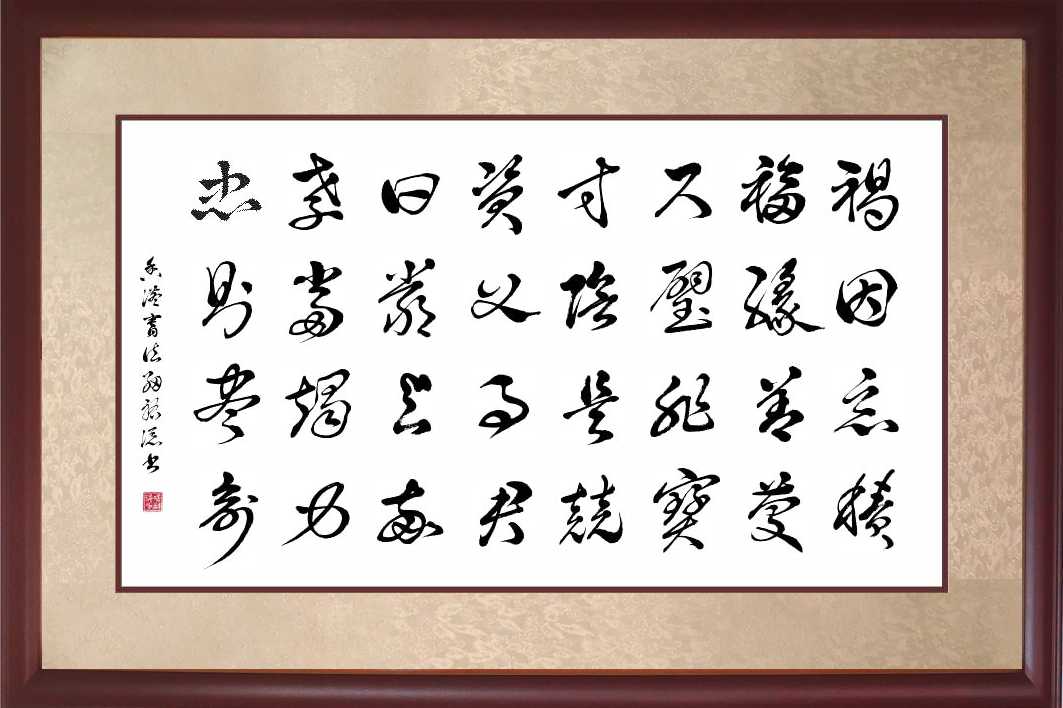 禍因惡積
福緣善慶
尺璧非寶
寸陰是競
資父事君
曰嚴與敬
孝當竭力
忠則盡命
香港書法